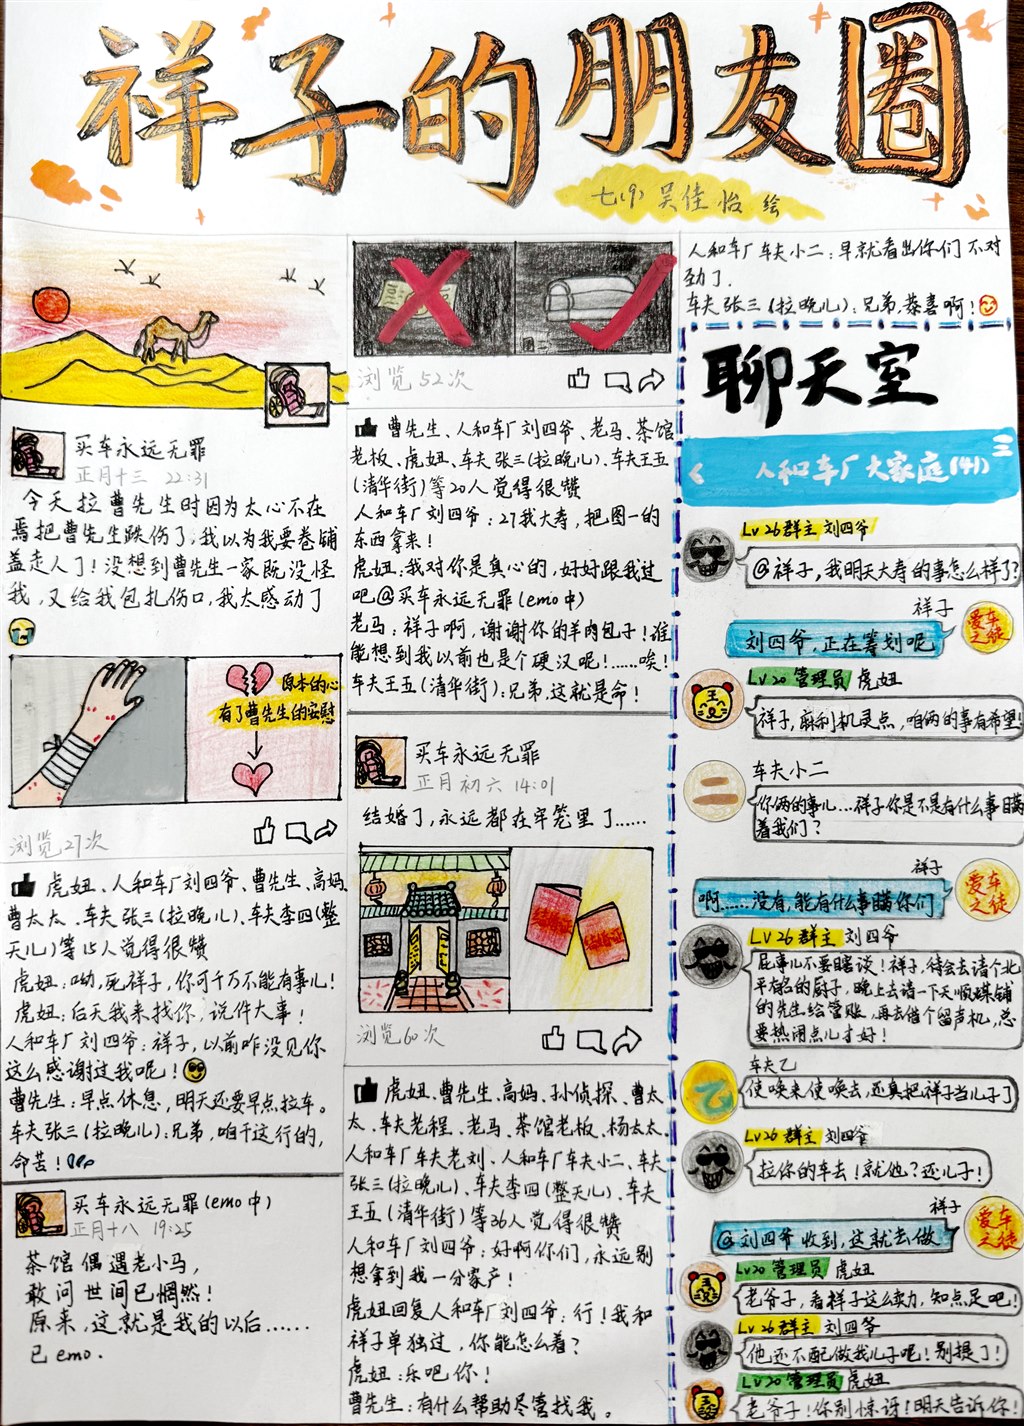 祥子的朋友圈
七(9) 吴佳怡 绘
买车永远无罪
正月十三 22:31
今天拉曹先生时因为太心不在
焉把曹先生跌伤了,我以为我要卷铺
盖走人了!没想到曹先生一家既没怪
我,又给我包扎伤口,我太感动了
原本的心
有了曹先生的安慰
浏览27次
虎妞、人和车厂刘四爷、曹先生、高妈、
曹太太、车夫张三(拉晚儿)、车夫李四(整
天儿)等15人觉得很赞
虎妞:呦,死祥子,你可千万不能有事儿!
虎妞:后天我来找你,说件大事!
人和车厂刘四爷:祥子,以前咋没见你
这么感谢过我呢!
曹先生:早点休息,明天还要早点拉车。
车夫张三(拉晚儿):兄弟,咱干这行的,
命苦!
买车永远无罪(emo中)
正月十八 19:25
茶馆偶遇老小马,
敢问世间已惘然!
原来,这就是我的以后……
已emo.
图二
浏览52次
曹先生、人和车厂刘四爷、老马、茶馆
老板、虎妞、车夫张三(拉晚儿)、车夫王五
(清华街)等20人觉得很赞
人和车厂刘四爷:27我大寿,把图一的
东西拿来!
虎妞:我对你是真心的,好好跟我过
吧@买车永远无罪(emo中)
老马:祥子啊,谢谢你的羊肉包子!谁
能想到我以前也是个硬汉呢!……唉!
车夫王五(清华街):兄弟,这就是命!
买车永远无罪
正月初六 14:01
结婚了,永远都在牢笼里了……
结婚证
结婚证
浏览60次
虎妞、曹先生、高妈、孙侦探、曹太
太、车夫老程、老马、茶馆老板、杨太太、
人和车厂车夫老刘、人和车厂车夫小二、车夫
张三(拉晚儿)、车夫李四(整天儿)、车夫
王五(清华街)等36人觉得很赞
人和车厂刘四爷:好啊你们,永远别
想拿到我一分家产!
虎妞回复人和车厂刘四爷:行!我和
祥子单独过,你能怎么着?
虎妞:乐吧你!
曹先生:有什么帮助尽管找我。
人和车厂车夫小二:早就看出你们不对
劲了.
车夫张三(拉晚儿):兄弟,恭喜啊!
聊天室
人和车厂大家庭(41)
Lv26群主 刘四爷
@祥子,我明天大寿的事怎么样了?
祥子
爱车之徒
刘四爷,正在筹划呢
Lv20管理员 虎妞
祥子,麻利机灵点,咱俩的事有希望!
二
车夫小二
你俩的事儿…祥子你是不是有什么事瞒
着我们?
祥子
爱车之徒
啊……没有,能有什么事瞒你们
Lv26群主 刘四爷
屁事儿不要瞎谈!祥子,待会去请个北
平有名的厨子,晚上去请一下天顺煤铺
的先生给管账,再去借个留声机,总
要热闹点儿才好!
乙
车夫乙
使唤来使唤去,还真把祥子当儿子了
Lv26群主 刘四爷
拉你的车去!就他?还儿子!
祥子
爱车之徒
@刘四爷 收到,这就去做
Lv20管理员 虎妞
老爷子,看祥子这么卖力,知点足吧!
Lv26群主 刘四爷
他还不配做我儿子呢!别提了!
Lv20管理员 虎妞
老爷子!你别惊讶!明天告诉你!